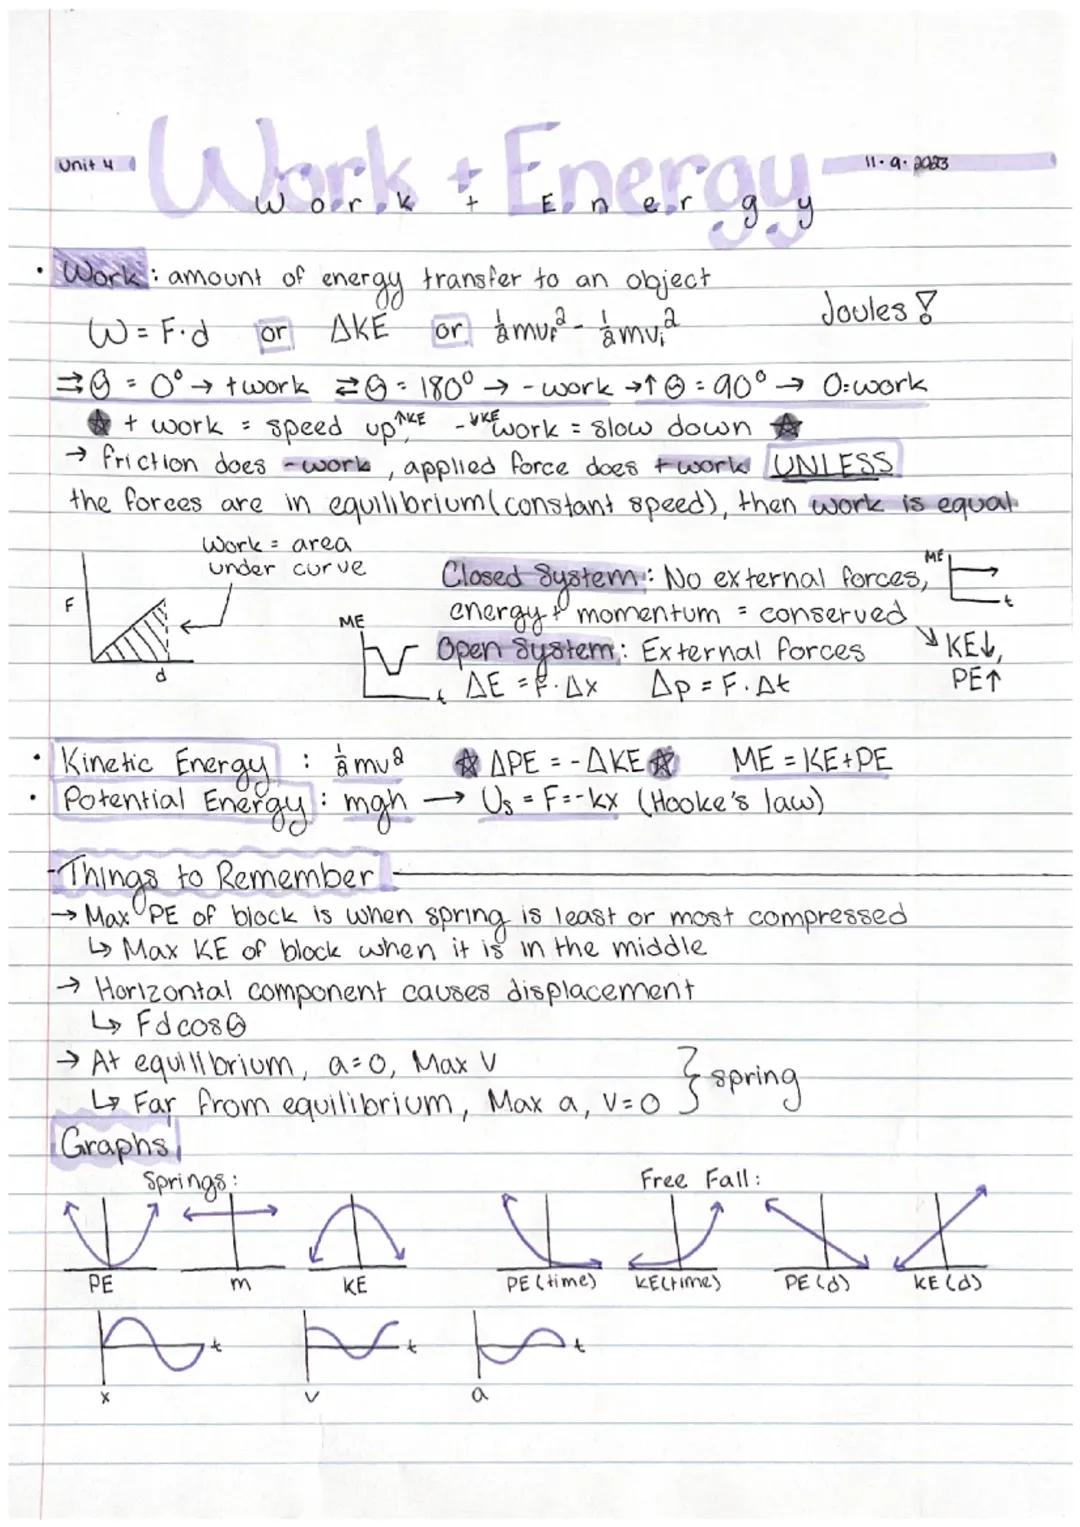 Unit 4
Work + Energy
11.9.2023
Work + Energy
• Work: amount of energy transfer to an object
Joules!
W = F·d or ΔKE or ½mvf² - ½mvi²
⇉ θ = 0° → +work ⇄ θ = 180° → -work →↑ θ = 90° → 0:work
☆ + work = speed up ↑KE - ↓KE work = slow down ☆
→ friction does -work, applied force does +work UNLESS
the forces are in equilibrium (constant speed), then work is equal
Work = area
under curve
F
d
Closed System: No external forces,
energy + momentum = conserved
ME
t
ME
t
Open System: External forces
ΔE = F·Δx Δp = F·Δt
↘ KE↓,
PE↑
• Kinetic Energy : ½mv² ☆ ΔPE = -ΔKE ☆ ME = KE+PE
• Potential Energy: mgh → Us = F=-kx (Hooke's law)
-Things to Remember
→ Max PE of block is when spring is least or most compressed
↳ Max KE of block when it is in the middle
→ Horizontal component causes displacement
↳ Fdcosθ
→ At equilibrium, a=0, Max V
↳ Far from equilibrium, Max a, V=0 } spring
Graphs
Springs: Free Fall:
PE m KE PE (time) KE(time) PE (d) KE (d)
t t t
x v a